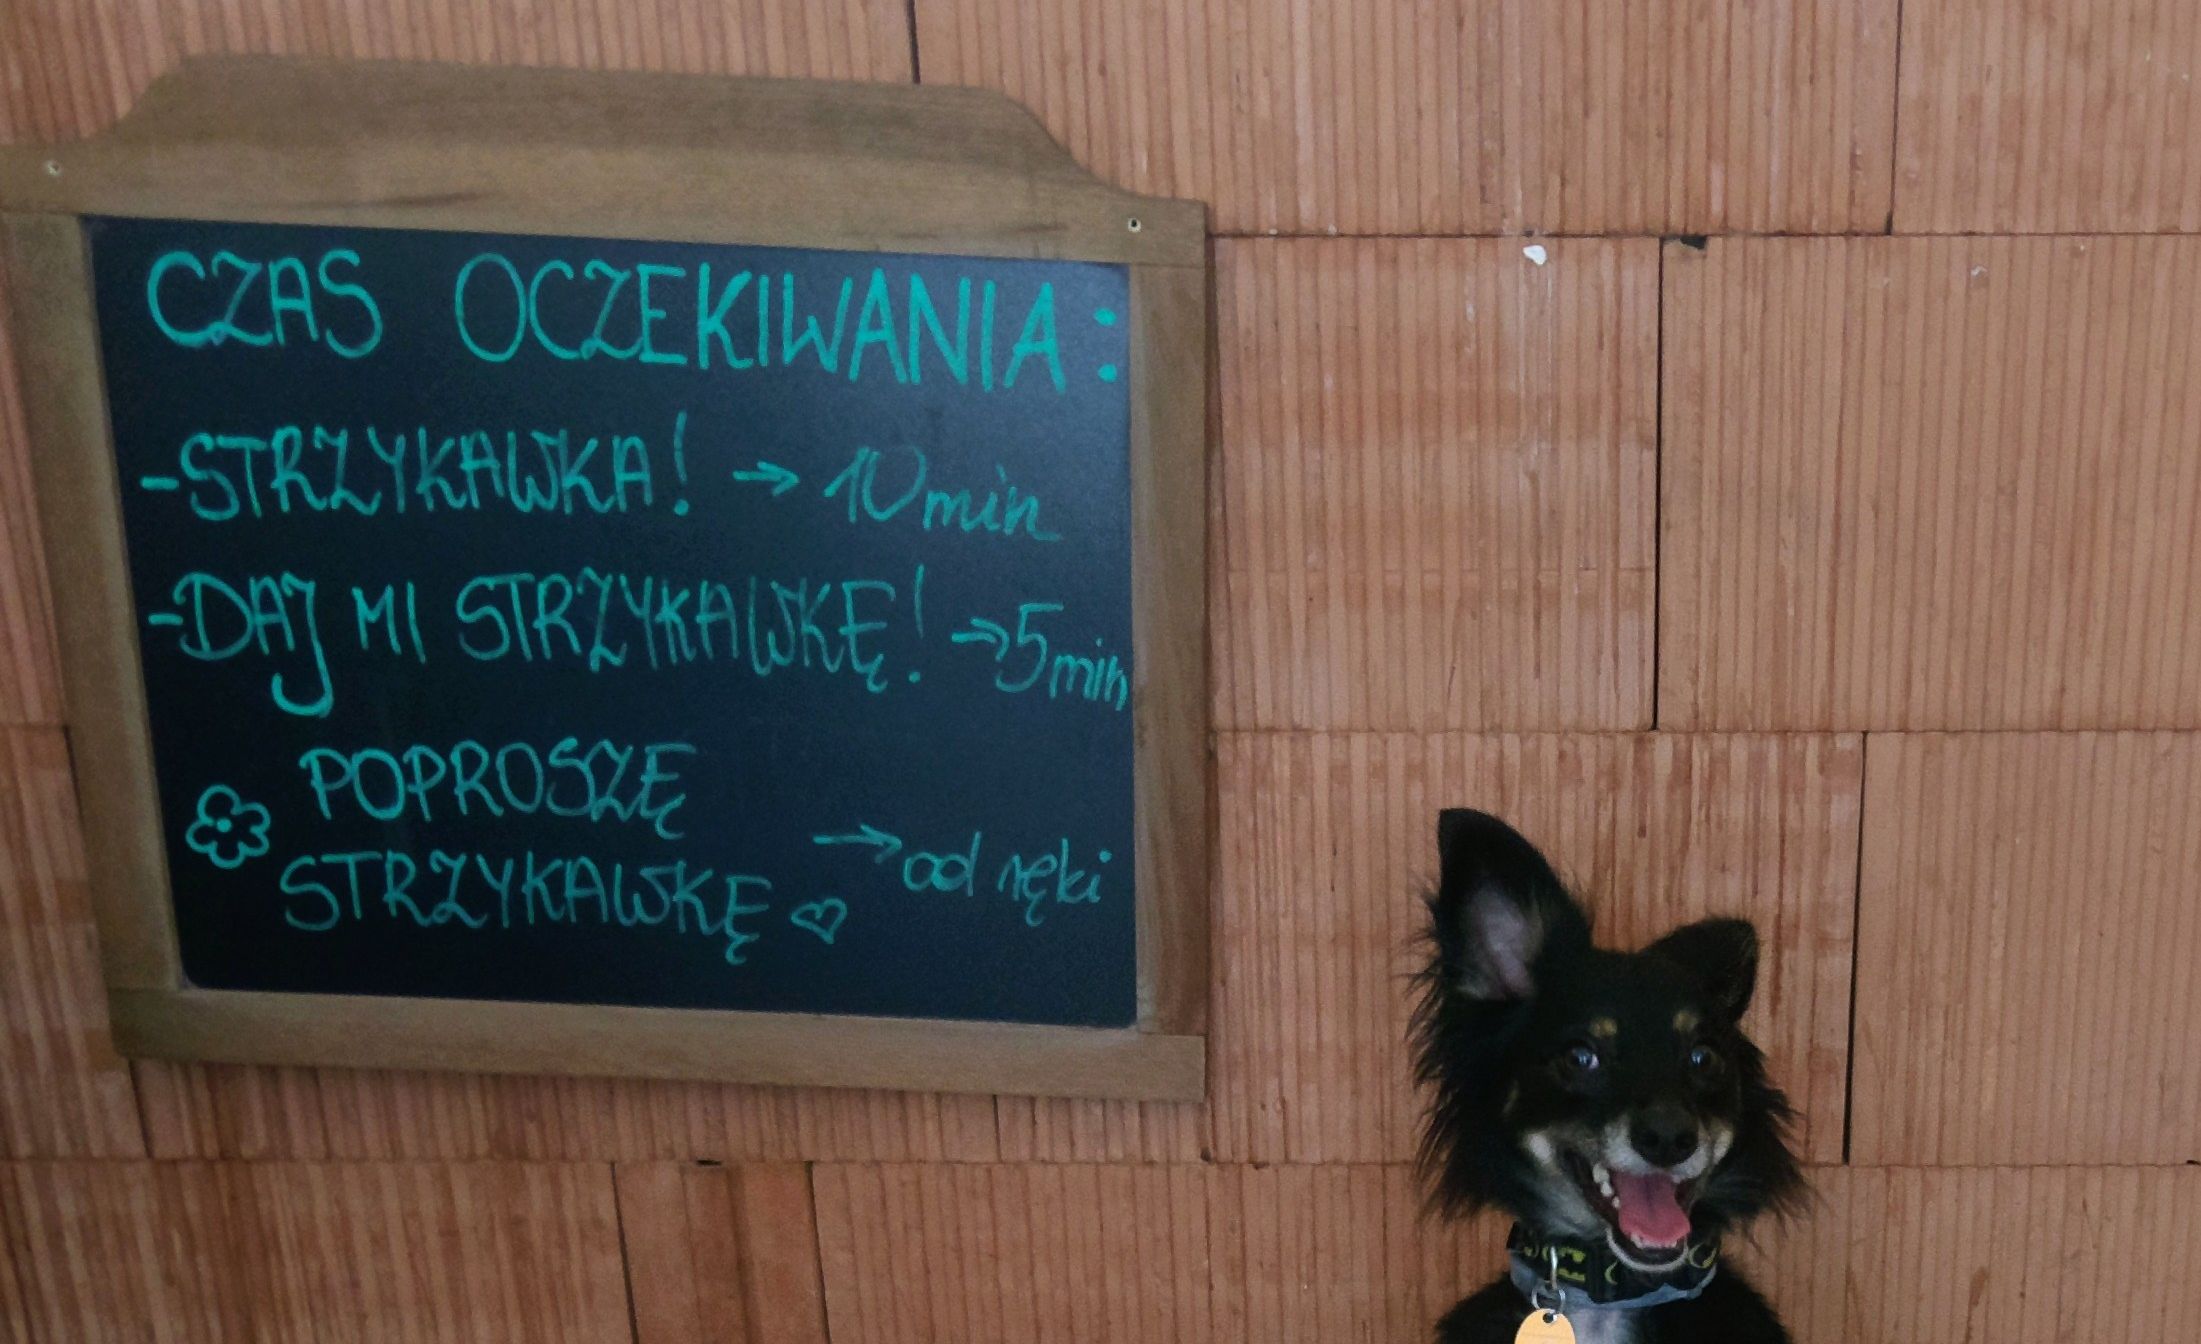 CZAS OCZEKIWANIA:
-STRZYKAWKA! → 10 min
-DAJ MI STRZYKAWKĘ! → 5 min
POPROSZĘ
STRZYKAWKĘ ♡ → od ręki